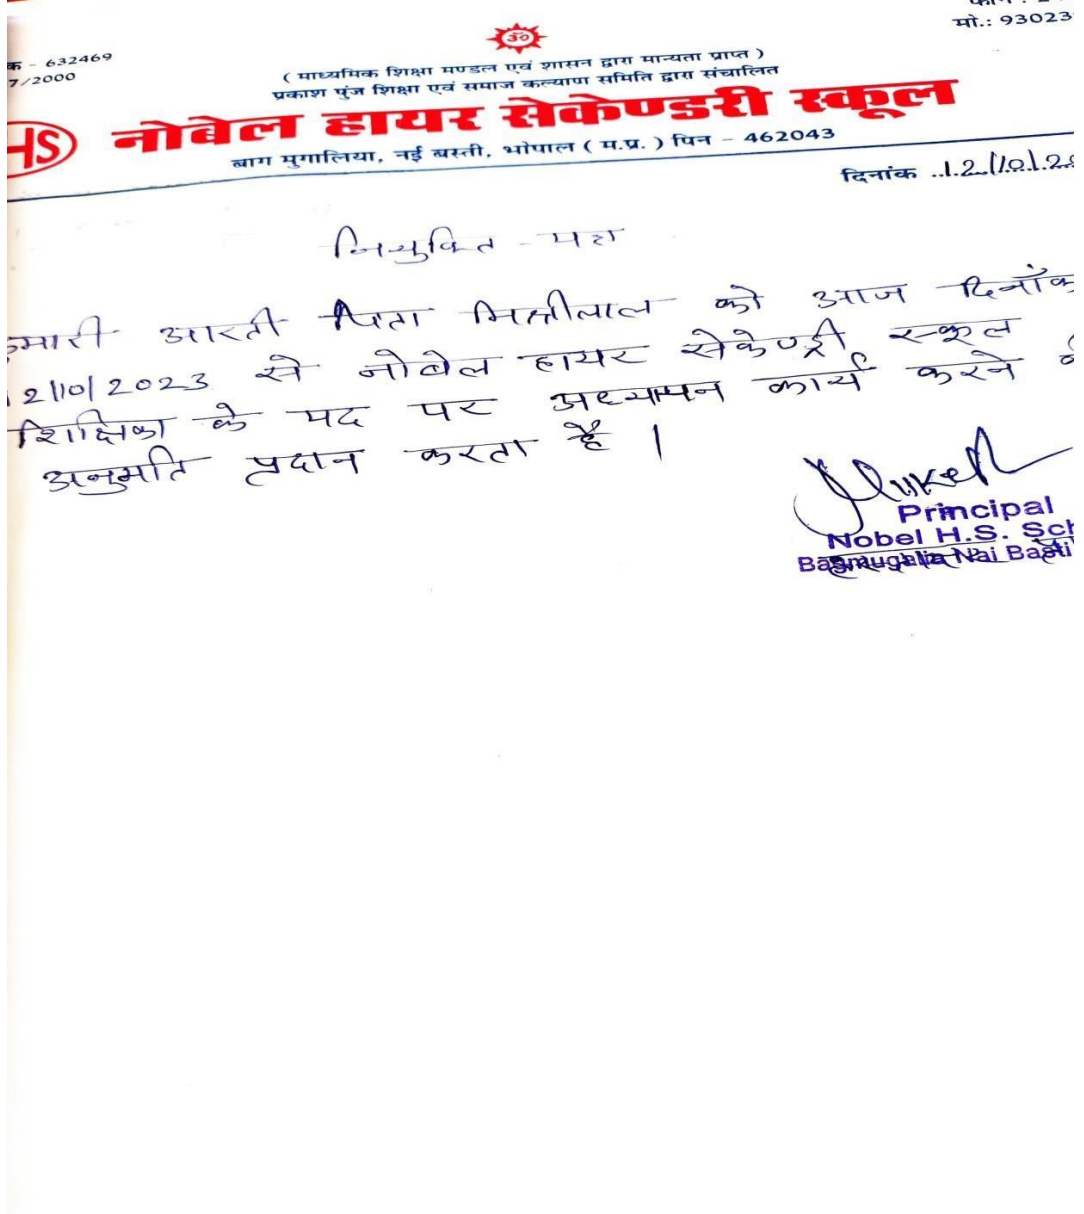 मो.: 93023
क - 632469
7/2000
ॐ
( माध्यमिक शिक्षा मण्डल एवं शासन द्वारा मान्यता प्राप्त )
प्रकाश पुंज शिक्षा एवं समाज कल्याण समिति द्वारा संचालित
HS नोबेल हायर सेकेण्डरी स्कूल
बाग मुगालिया, नई बस्ती, भोपाल ( म.प्र. ) पिन - 462043
दिनांक 12/10/20
नियुक्ति - पत्र
कुमारी आरती पिता मिश्रीलाल को आज दिनाँक
12/10/2023 से नोबेल हायर सेकेण्ड्री स्कूल
शिक्षिका के पद पर अध्यापन कार्य करने की
अनुमति प्रदान करता है |
Principal
Nobel H.S. Sch
Bagmugalia Nai Basti